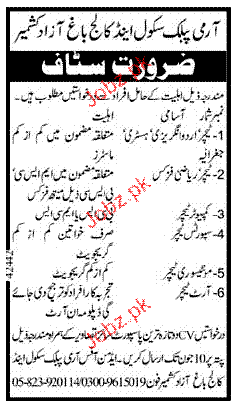 آرمی پبلک سکول اینڈ کالج باغ آزاد کشمیر
ضرورت سٹاف
مندرجہ ذیل اہلیت کے حامل افراد سے درخواستیں مطلوب ہیں۔
نمبر شمار آسامی اہلیت
1- ٹیچر اردو/انگریزی/ہسٹری/ متعلقہ مضمون میں کم از کم
جغرافیہ ماسٹرز
2- ٹیچر ریاضی/فزکس متعلقہ مضمون میں ایم ایس سی/
بی ایس سی ڈبل میتھ فزکس
3- کمپیوٹر ٹیچر بی سی ایس یا ایم سی ایس
4- سپورٹس ٹیچر صرف خواتین کم از کم
گریجویٹ
5- مانٹیسوری ٹیچر کم از کم گریجویٹ
6- آرٹ ٹیچر تجربہ کار افراد کو ترجیح دی جائے
گی ڈپلومہ ان آرٹ
درخواستیں CV دو تازہ ترین پاسپورٹ سائز تصاویر کے ہمراہ مندرجہ ذیل
پتہ پر 10 جون تک ارسال کریں۔ ایڈمن آفس آرمی پبلک سکول اینڈ
کالج باغ آزاد کشمیر فون 05-823-920114/0300-9615019
42442
Jabz.pk
Jabz.pk
Jabz.pk